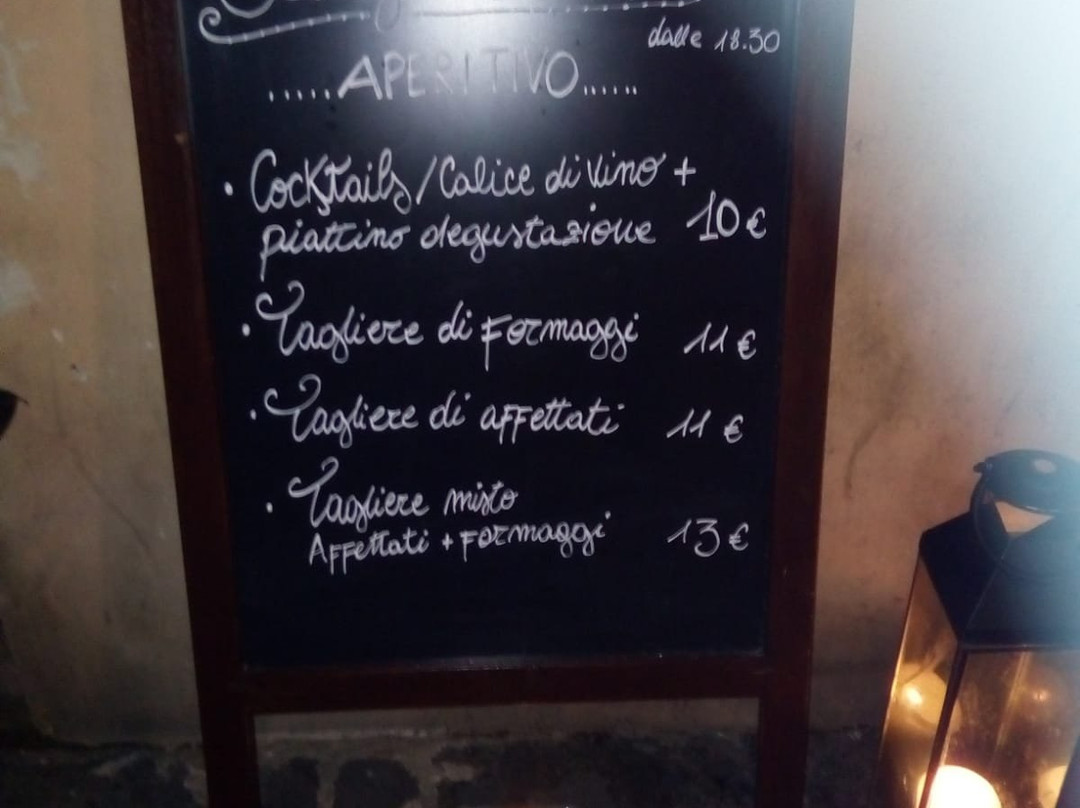 dalle 18.30
.....APERITIVO......
• Cocktails/Calice di vino +
piattino degustazione 10€
• Tagliere di formaggi 11€
• Tagliere di affettati 11€
• Tagliere misto
Affettati + formaggi 13€